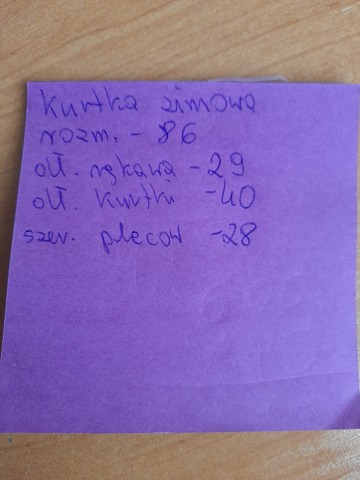 kurtka zimowa
rozm. - 86
dł. rękawa - 29
dł. kurtki - 40
szer. pleców - 28